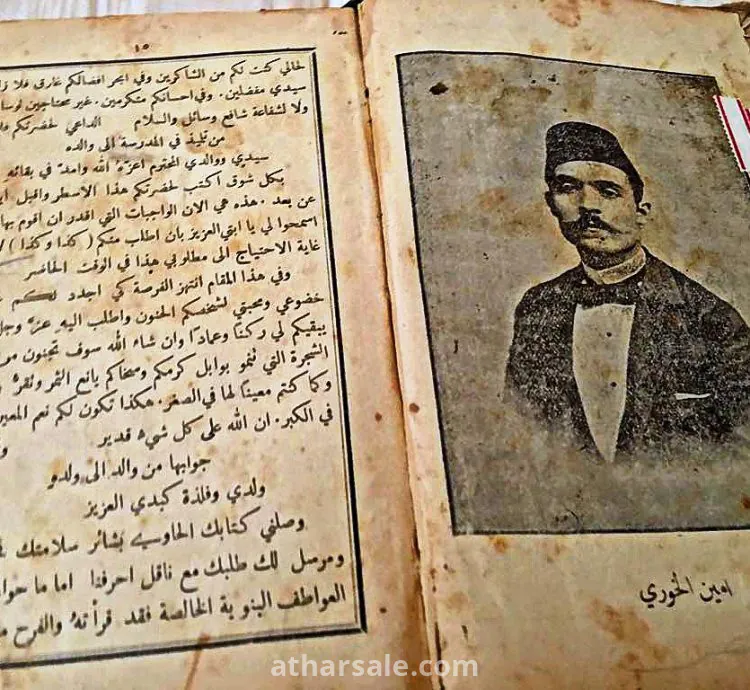 ١٥
لحالي كنت لكم من الشاكرين وفي ابحر افضالكم غارق فلا
سيدي مفضلين. وفي احسانكم متكرمين. غير محتاجين
ولا لشفاعة شافع وسائل والسلام الداعي لحضرتكم
من تليذ في المدرسة الى والده
سيدي ووالدي المحترم اعزهُ الله وامدَّ في بقائه
بكل شوق اكتب لحضرتكم هذا الاسطر واقبل
عن بعد. هذه هي الان الواجبات التي اقدر ان اقوم بها
اسمحوا لي يا ابتي العزيز بان اطلب منكم (كذا وكذا)
غاية الاحتياج الى مطلوبي هذا في الوقت الحاضر
وفي هذا المقام انتهز الفرصة كي اجدد لكم
خضوعي ومحبتي لشخصكم الحنون واطلب اليهِ عزَّ وجل
يبقيكم لي ركنًا وعمادًا وان شاء الله سوف تجنون
الشجرة التي تنمو بوابل كرمكم وسخاكم يانع الثمر وتقرُّ
وكما كنتم معينًا لها في الصغر. هكذا تكون لكم نعم المعين
في الكبر. ان الله على كل شيء قدير
جوابها من والد الى ولدو
ولدي وفلذة كبدي العزيز
وصلني كتابك الحاوي بشائر سلامتك
ومرسل لك طلبك مع ناقل احرفنا اما ما
العواطف البنوية الخالصة فقد قرأتهُ والفرح
امين الخوري
atharsale.com